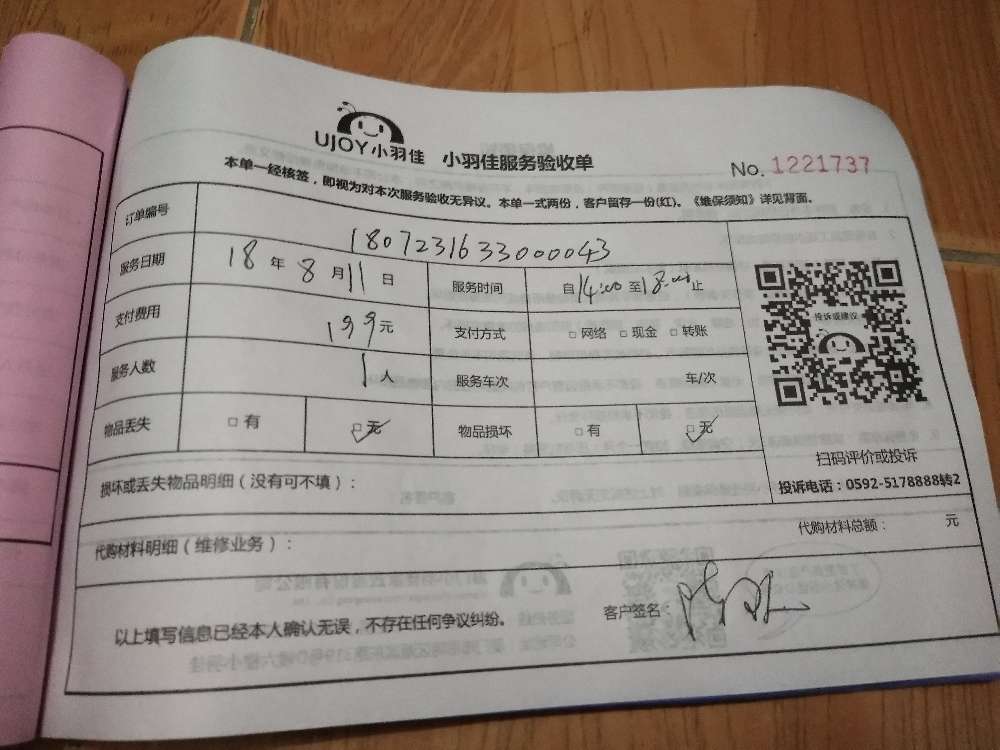 UJOY小羽佳 小羽佳服务验收单 No. 1221737
本单一经核签，即视为对本次服务验收无异议。本单一式两份，客户留存一份(红)。《维保须知》详见背面。
订单编号 1807231633000043
服务日期 18年8月11日 服务时间 自14:00至18:00止
支付费用 199元 支付方式 □网络 □现金 □转账
服务人数 1人 服务车次 车/次
物品丢失 □有 ☑无 物品损坏 □有 ☑无
投诉或建议
扫码评价或投诉
投诉电话：0592-5178888转2
损坏或丢失物品明细（没有可不填）：
代购材料明细（维修业务）： 代购材料总额： 元
以上填写信息已经本人确认无误，不存在任何争议纠纷。 客户签名：